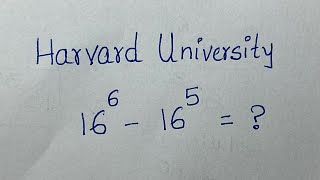 Harvard University
16⁶ - 16⁵ = ?